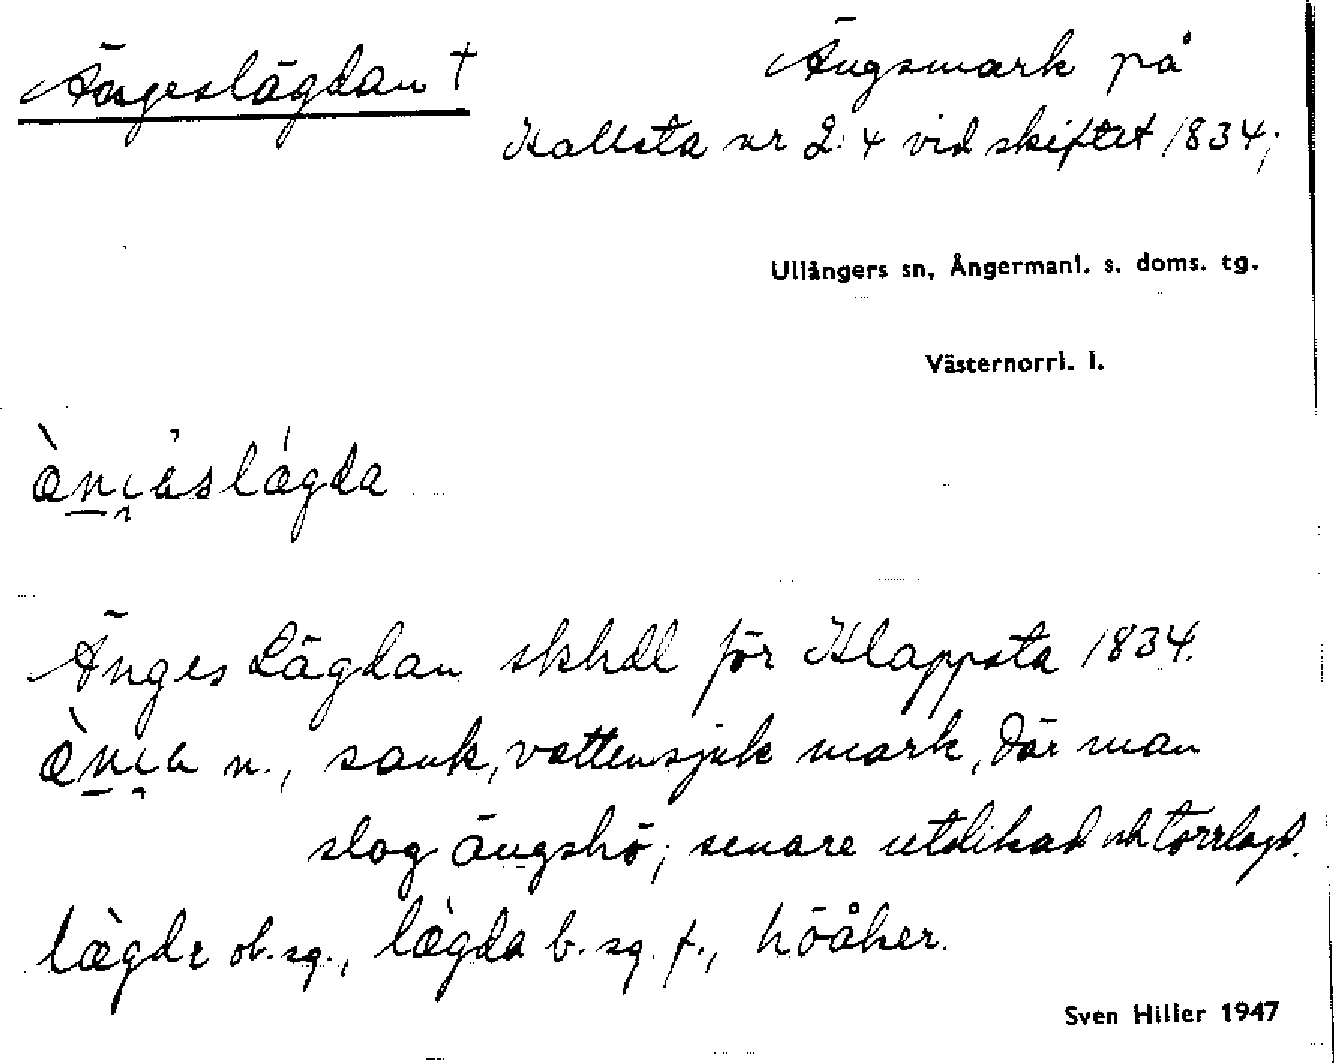 Ängeslägdan †
Ängsmark på
Kallsta nr 2:4 vid skiftet 1834;
Ullångers sn, Ångermanl. s. doms. tg.
Västernorrl. l.
Änges Lägdan skhdl för Klappsta 1834.
n., sank, vattensjuk mark, där man
slog ängshö; senare utdikad och torrlagd.
lægdɪ ob. sg., lægda b. sg. f., höåker.
Sven Hiller 1947